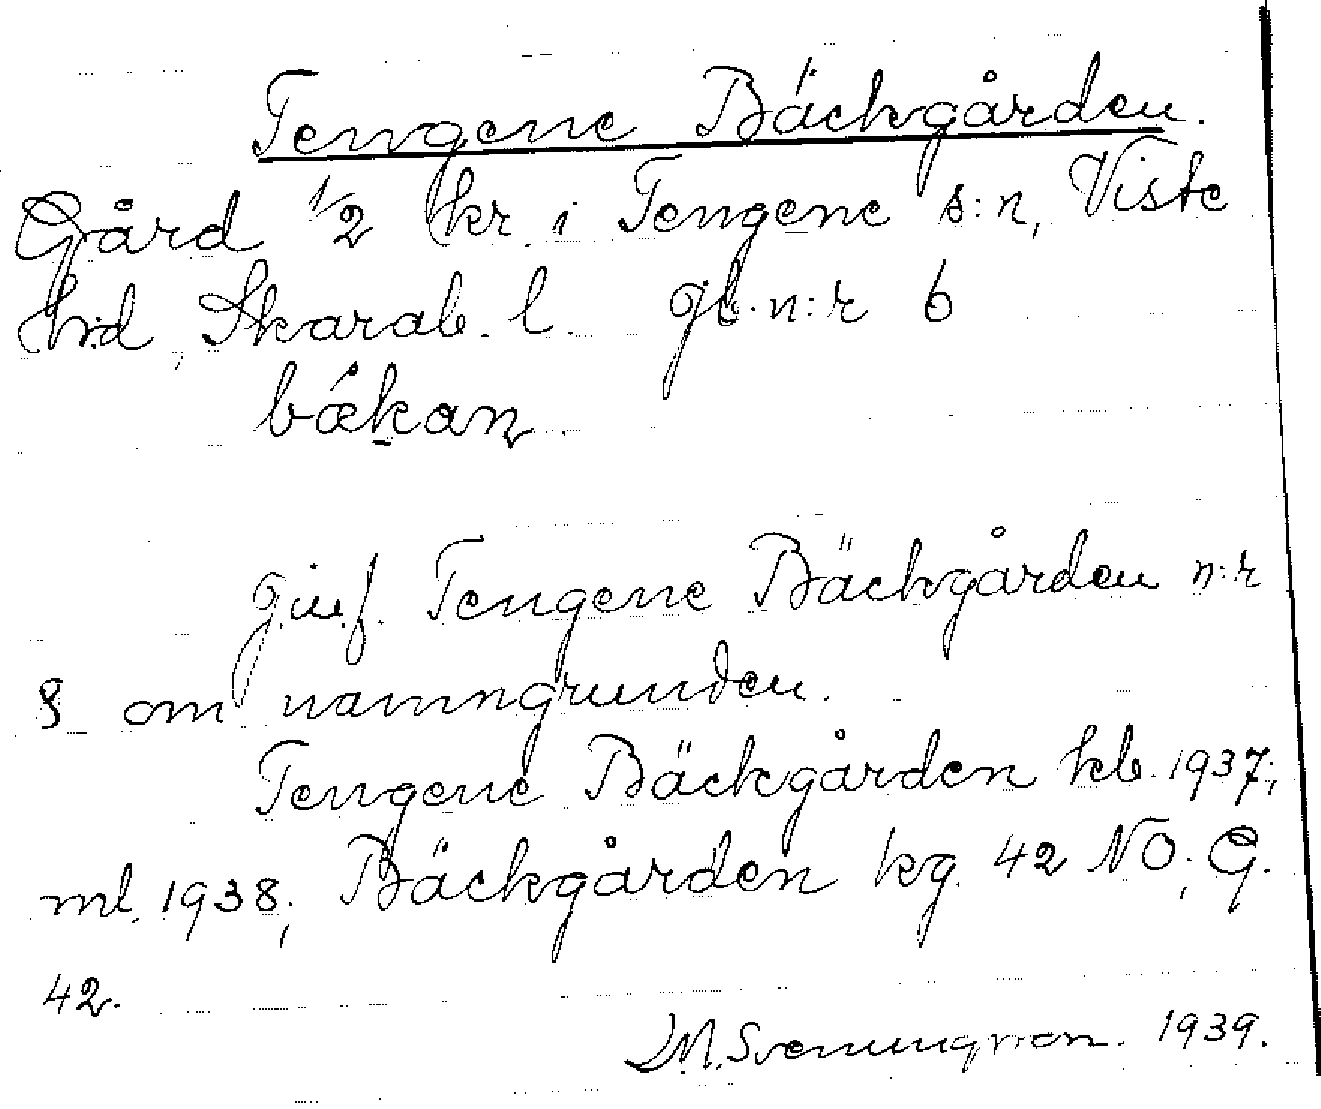 Tengene Bäckgården.
Gård 1/2 hkr. i Tengene s:n, Viste
hd, Skarab. l. gb. n:r 6
bǽkan
Tengene Bäckgården n:r
8 om namngrunden.
Tengene Bäckgården kb. 1937;
ml. 1938; Bäckgården kg. 42 NO; G.
42.
M. Sveningsson. 1939.